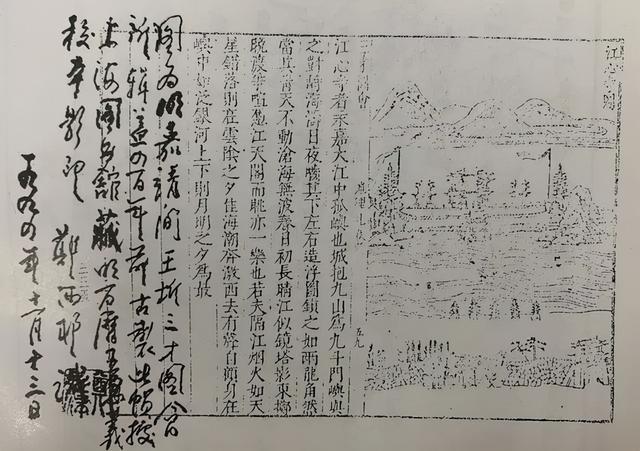 江心寺圖
三才圖會
五九
江心寺者永嘉大江中孤嶼也城抱九山為九斗門嶼與
之對海日夜嚙其下左右造浮圖鎖之如兩龍角然
當其青天不動滄海無波春日初長晴江似鏡塔影東擲
晚憑江天閣而眺亦一樂也若夫隔江烟火如天
星錯落則在雲陰之夕佳海潮奔激西去有聲自顧身在
嶼中如泛銀河上下則月明之夕為最
圖為明嘉靖間王圻三才圖會
所輯四百年前古製此幀據
上海圖書館藏明万曆王思義
校本影印 鄭
一九九四年十一月十三日